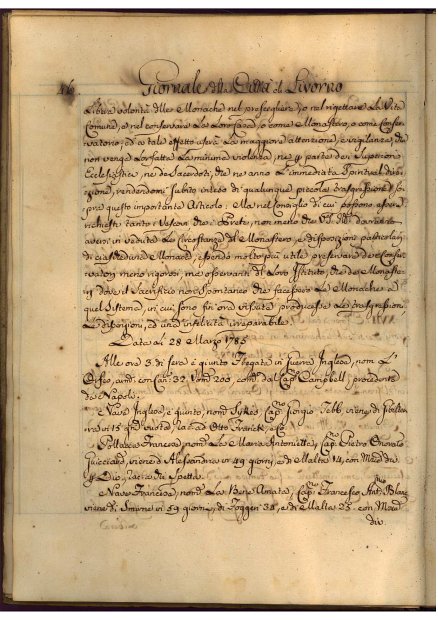 46 Giornale della Città di Livorno
libera volontà delle Monache nel prosceglere, o nel rigettare La Vita
Comune, e nel conservare La Loro Casa, o come Monastero, o come Conser
vatorio; ed a tale effetto usare La maggiore attenzione, e vigilanza, che
non venga Loro fatta La minima violenza, ne p parte dei Superiori
Ecclesiastici, ne de Sacerdoti, che ne anno L'immediata Spiritual dire
zione, rendendomi subito inteso di qualunque piccola trasgressione so
pra questo importante Articolo; Ella nel consiglio di cui possono essere
richiesti tanto i Vescovi che i Preti, non meno che
aversi in veduta Le Circostanze del Monastero, e disposizioni particolari
di ciascheduna Monaca, essendo molto più utile preservare dei Conser
vatorj meno rigorosi, ma osservanti del Loro Istituto, che dei Monaste
rj dove il Sacrifizio non spontaneo che facessero Le Monache a
quel Sistema, in cui sono fin ora vissute, producesse Le trasgressioni
Le disunzioni, ed una infelicità irreparabile.
Data Li 28 Marzo 1785
Alle ore 3. di sera è giunto Fregata in Guerra Inglese, nom. L'
Orfeo, con Can. 32. Uom. 200, comd. dal Cap. Campbell, procedente
da Napoli.
Nave Inglese, è giunto, nom. Tykes, Cap. Giorgio Tebb viene di Gibilter
ra in 15 gni vuoto, rac. a Otto Franck, e C.
Pollacca Francese, nom. La Maria Antonietta, Cap. Pietro Onorato
Guiccard, viene d'Alessandria in 49 giorni, e di Malta 14, con Mac. div.
p Div., rac. a chi Spetta.
Nave Francese, nom. La Bene Amata, Cap. Francesco Ant. Blanc
viene di Smirne in 59 giorni, di Foggen 38, e di Malta 25. con Mac.
div.